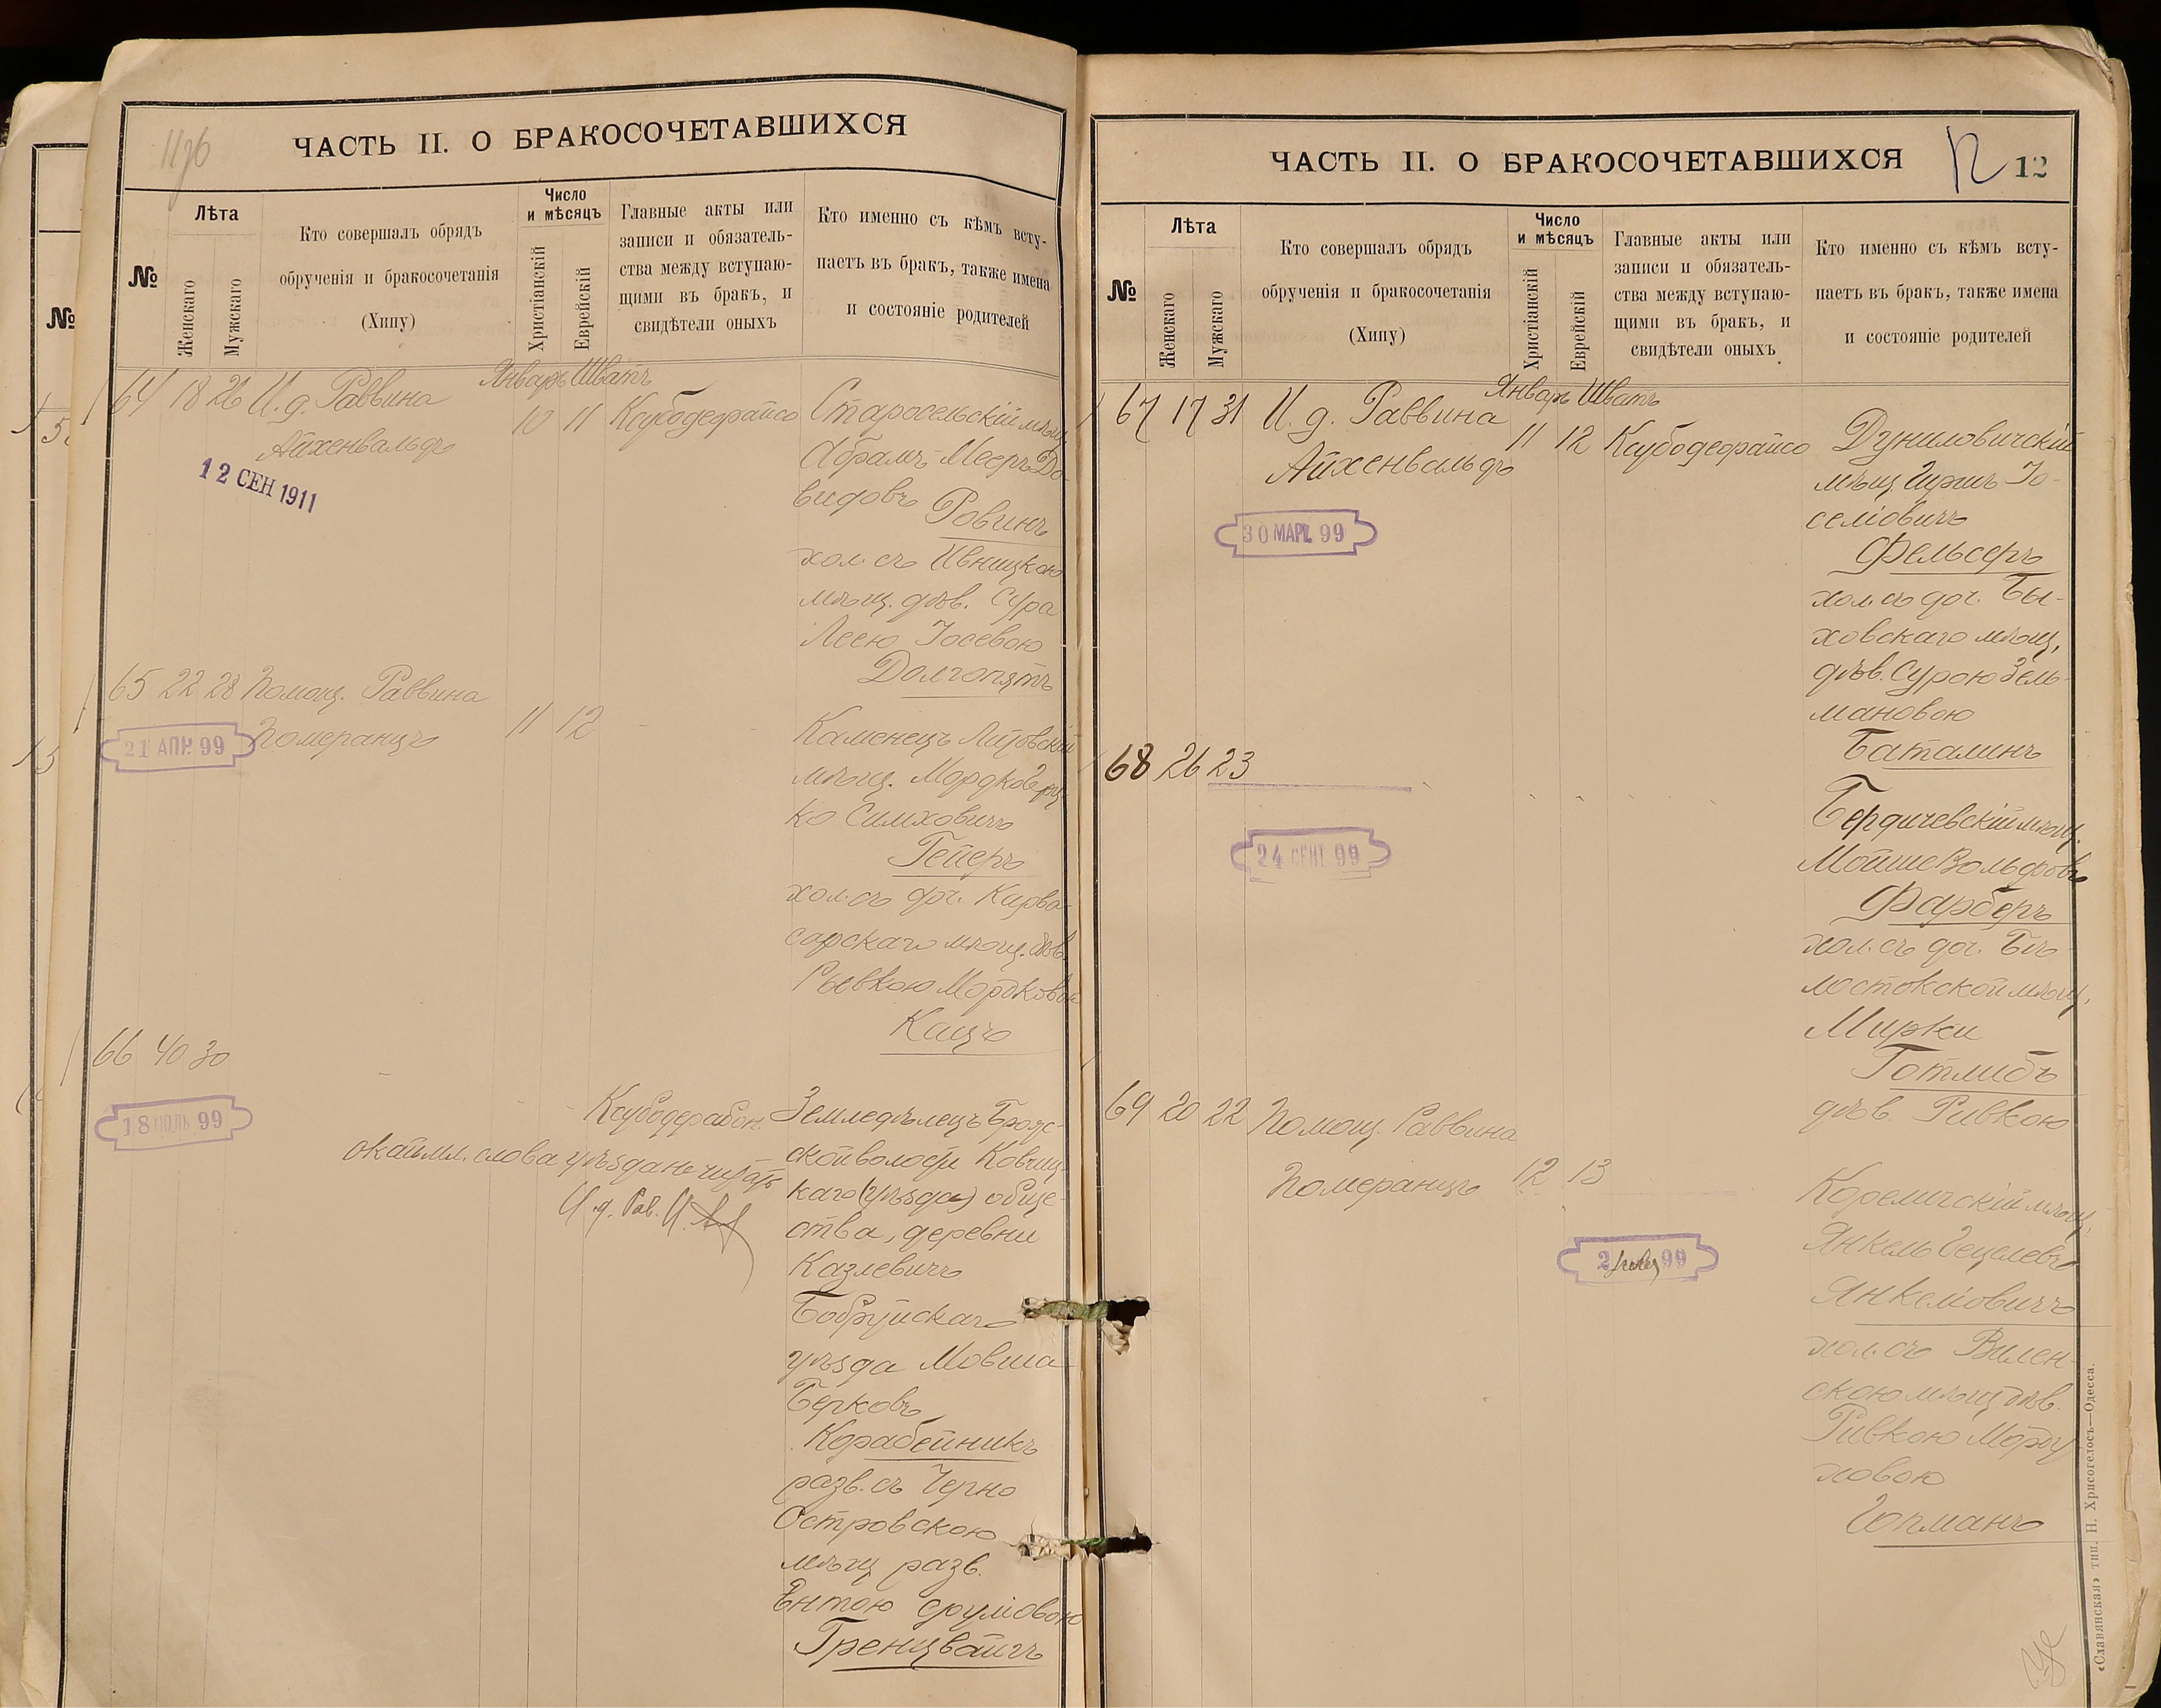 ЧАСТЬ II. О БРАКОСОЧЕТАВШИХСЯ
№
Лѣта
Женскаго
Мужскаго
Кто совершалъ обрядъ
обрученія и бракосочетанія
(Хипу)
Число
и мѣсяцъ
Христіанскій
Еврейскій
Главные акты или
записи и обязатель-
ства между вступаю-
щими въ бракъ, и
свидѣтели оныхъ
Кто именно съ кѣмъ всту-
паетъ въ бракъ, также имена
и состояніе родителей
Январь Шватъ
64 18 26 И. д. Раввина
Айхенвальдъ
10 11
12 СЕН 1911
Старосельскій мѣщ.
Абрамъ-Мееръ До-
видовъ Ровинъ
хол. съ Ивницкою
мѣщ. дѣв. Сура
Леею Іосевою
Долгопятъ
65 22 28 Помощ. Раввина
Померанцъ
11 12
21 АПР. 99
Каменецъ Литовскій
мѣщ. Мордко Герш
ко Симховичъ
Гейеръ
хол. съ доч. Карва-
сарскаго мѣщ. дѣв.
Рывкою Мордковою
Кацъ
66 40 30
18 ІЮЛЬ 99
окаймл. слова уѣзда не читать
И. д. Рав.
Земледѣлецъ Брожс-
кой волости Ковчиц-
каго (уѣзда) обще-
ства, деревни
Казлевичъ
Бобруйскаго
уѣзда Мовша
Берковъ
Корабейникъ
разв. съ Черно
Островскою
мѣщ разв.
Ентою Сруліовою
Гренцвайгъ
ЧАСТЬ II. О БРАКОСОЧЕТАВШИХСЯ
12 12
№
Лѣта
Женскаго
Мужскаго
Кто совершалъ обрядъ
обрученія и бракосочетанія
(Хипу)
Число
и мѣсяцъ
Христіанскій
Еврейскій
Главные акты или
записи и обязатель-
ства между вступаю-
щими въ бракъ, и
свидѣтели оныхъ
Кто именно съ кѣмъ всту-
паетъ въ бракъ, также имена
и состояніе родителей
Январь Шватъ
67 17 31 И. д. Раввина
Айхенвальдъ
11 12
30 МАРТ. 99
Дуниловичскій
мѣщ. Гиршъ Іо-
селіовичъ
Фельсеръ
хол. съ доч. Бы-
ховскаго мѣщ,
дѣв. Сурою Зель-
мановою
Баталинъ
68 26 23
24 СЕНТ 99
Бердичевскій мѣщ.
Мойше Вольфовъ
Фарберъ
хол. съ доч. Бѣ-
лостокской мѣщ.
Мирки
Готлибъ
дѣв Ривкою
69 20 22 Помощ. Раввина
Померанцъ
12 13
Кореличскій мѣщ.
Янкель Гецелевъ
Янкеліовичъ
хол. съ Вилен-
скою мѣщ дѣв.
Ривкою Морду-
ховою
Гопманъ
«Славянская» тип. Н. Хрисогелосъ—Одесса.